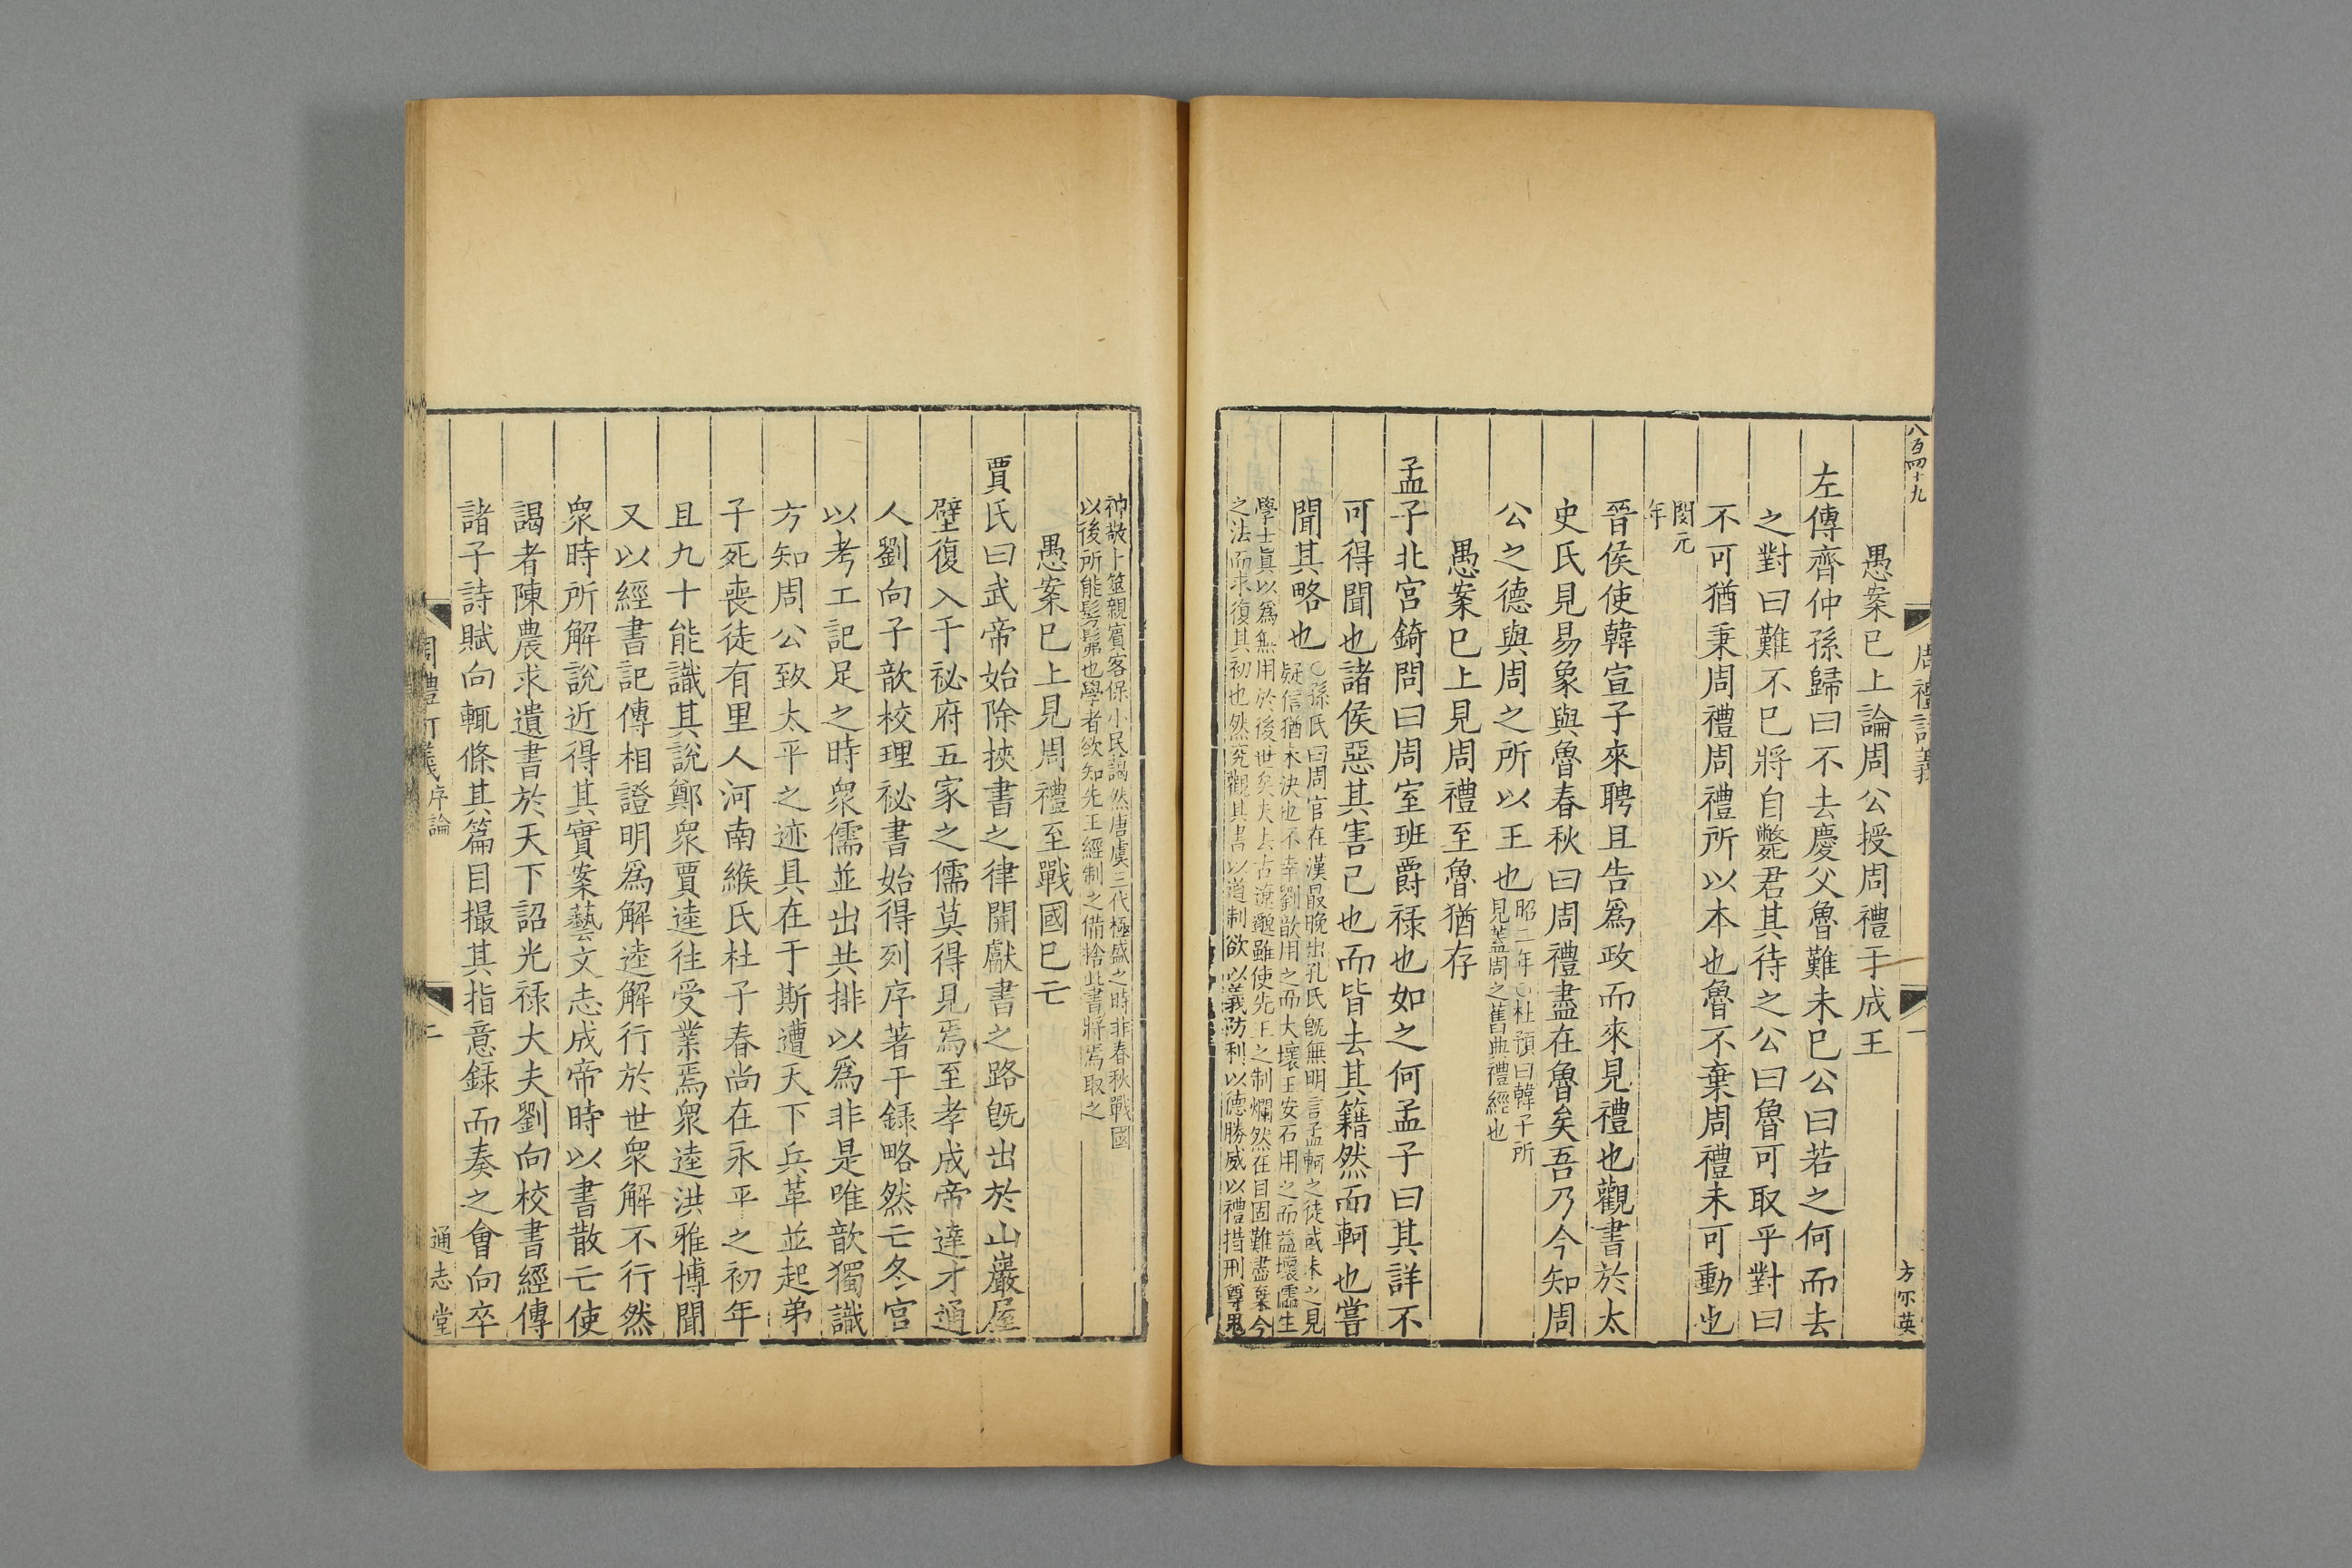 八百四十九
周禮訂義
一
方尔英
愚案已上論周公授周禮于成王
左傳齊仲孫歸曰不去慶父魯難未已公曰若之何而去
之對曰難不已將自斃君其待之公曰魯可取乎對曰
不可猶秉周禮周禮所以本也魯不棄周禮未可動也
閔元
年
晉侯使韓宣子來聘且告爲政而來見禮也觀書於太
史氏見易象與魯春秋曰周禮盡在魯矣吾乃今知周
公之德與周之所以王也
昭二年○杜預曰韓子所
見蓋周之舊典禮經也
愚案已上見周禮至魯猶存
孟子北宮錡問曰周室班爵祿也如之何孟子曰其詳不
可得聞也諸侯惡其害己也而皆去其籍然而軻也嘗
聞其略也
○孫氏曰周官在漢最晚出孔氏旣無明言孟軻之徒或未之見
疑信猶未決也不幸劉歆用之而大壞王安石用之而益壞儒生
學士眞以爲無用於後世矣夫去古遼邈雖使先王之制爛然在目固難盡棄今
之法而求復其初也然究觀其書以道制欲以義防利以德勝威以禮措刑尊鬼
神敬卜筮親賓客保小民藹然唐虞三代極盛之時非春秋戰國
以後所能髣髴也學者欲知先王經制之備捨此書將焉取之
愚案已上見周禮至戰國已亡
賈氏曰武帝始除挾書之律開獻書之路旣出於山巖屋
壁復入于祕府五家之儒莫得見焉至孝成帝達才通
人劉向子歆校理祕書始得列序著于錄略然亡冬官
以考工記足之時衆儒並出共排以爲非是唯歆獨識
方知周公致太平之迹具在于斯遭天下兵革並起弟
子死喪徒有里人河南緱氏杜子春尚在永平之初年
且九十能識其說鄭衆賈逵往受業焉衆逵洪雅博聞
又以經書記傳相證明爲解逵解行於世衆解不行然
衆時所解說近得其實案藝文志成帝時以書散亡使
謁者陳農求遺書於天下詔光祿大夫劉向校書經傳
諸子詩賦向輒條其篇目撮其指意錄而奏之會向卒
周禮訂義序論
二
通志堂